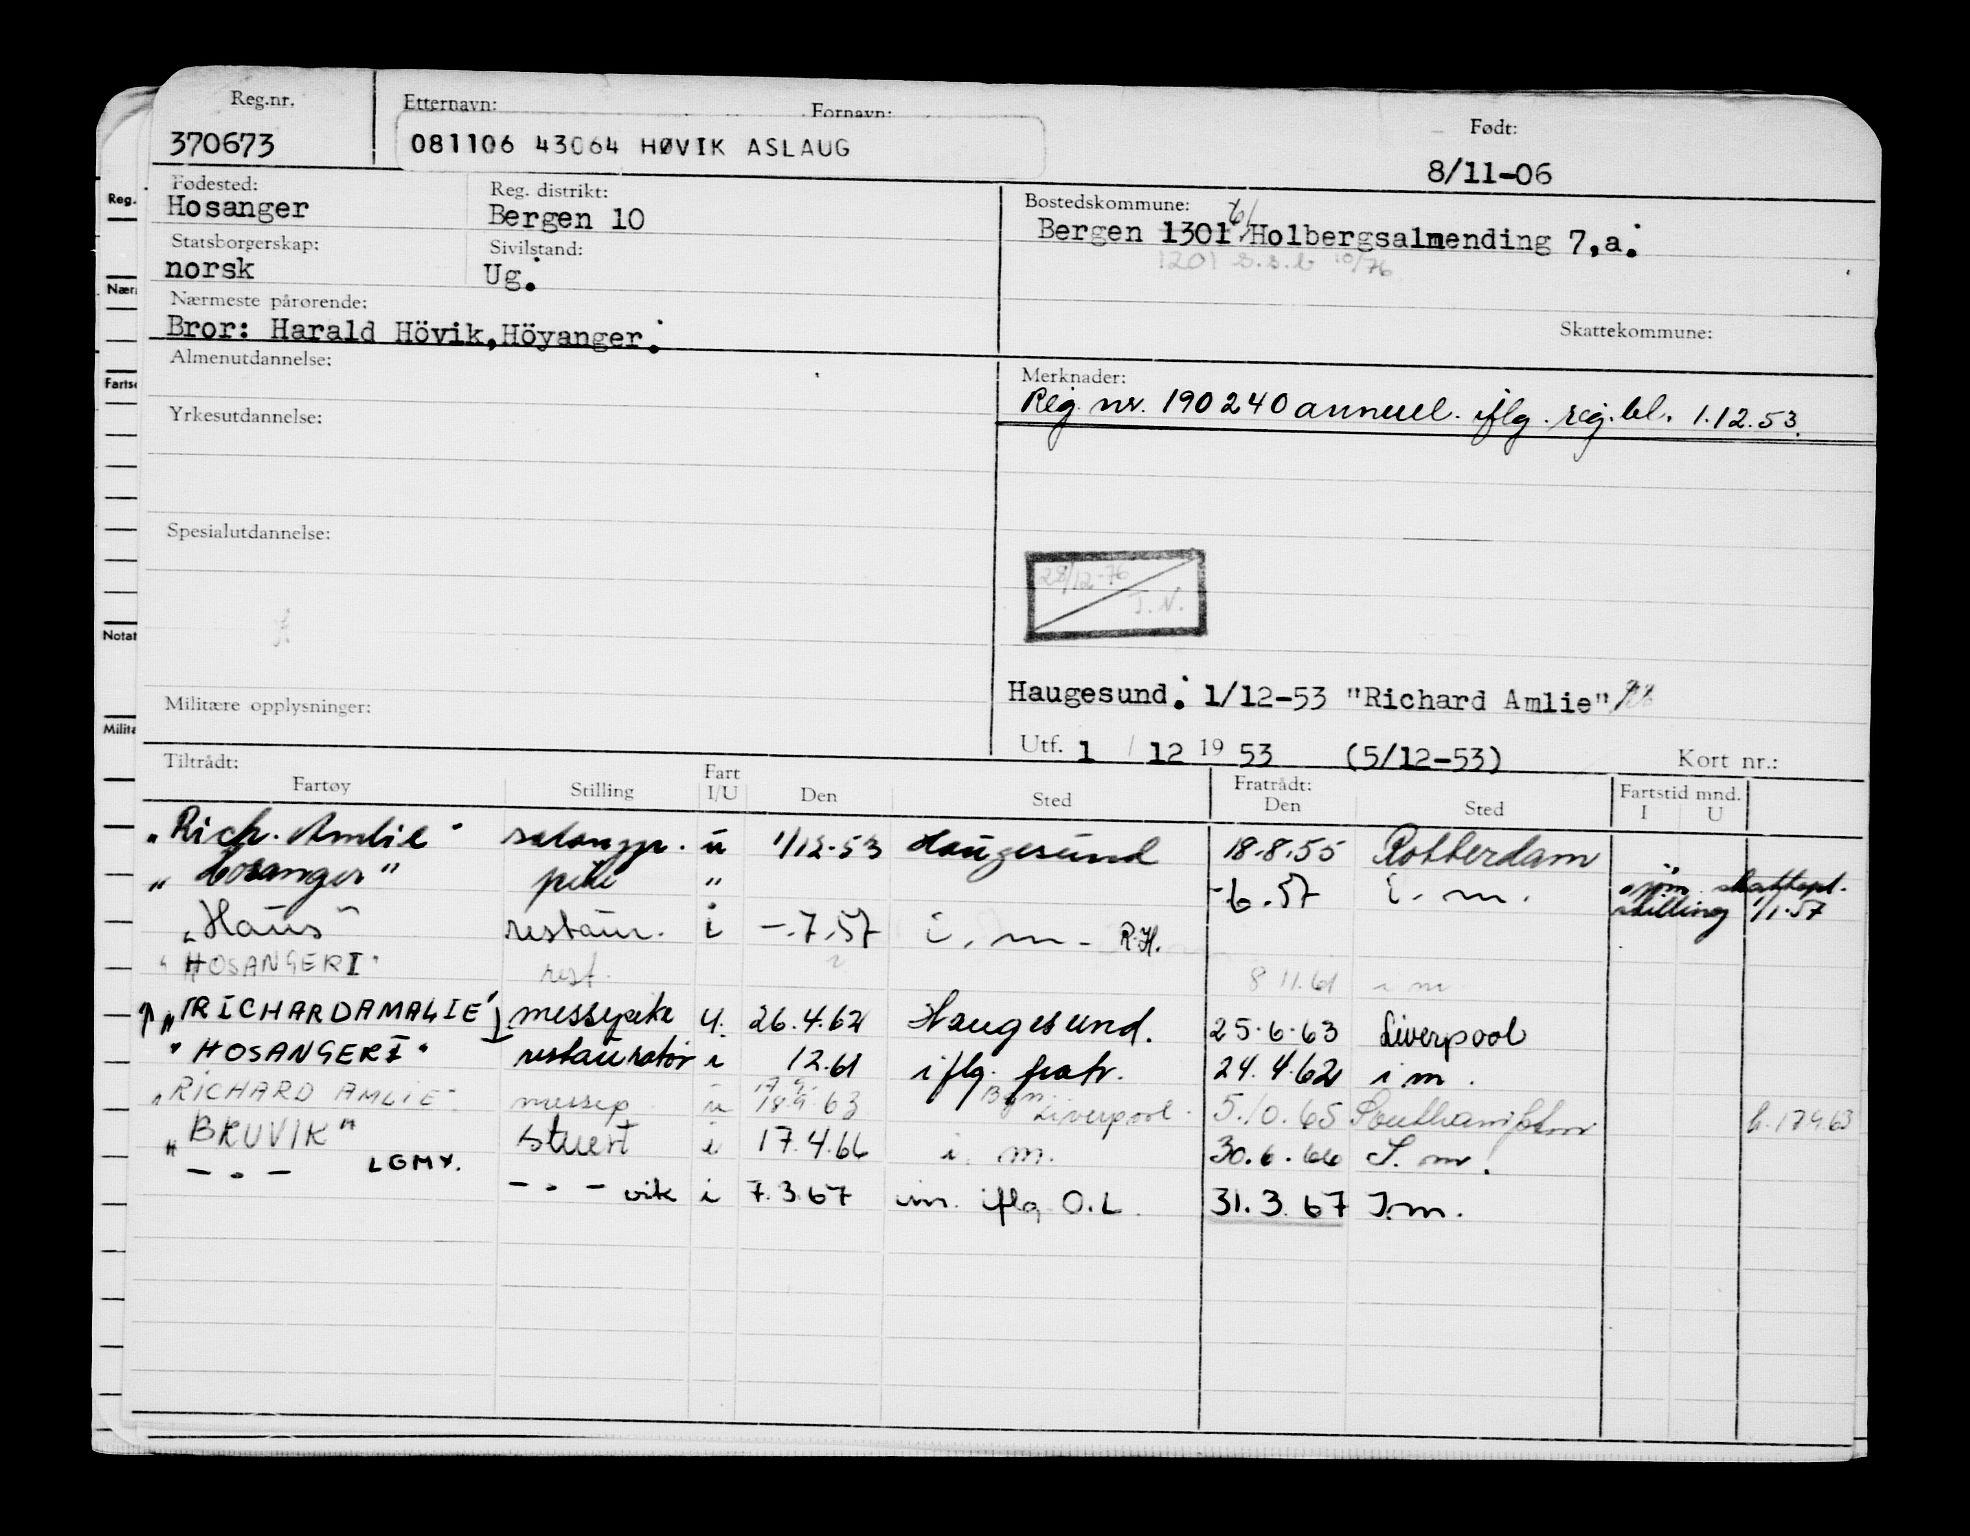 Reg.nr. Etternavn: Fornavn: Født:
370673 081106 43064 HØVIK ASLAUG 8/11-06
Fødested: Reg. distrikt: Bostedskommune:
Hosanger Bergen 10 Bergen 1301 Holbergsalmending 7,a.
Statsborgerskap: Sivilstand: 1201 10/76
norsk Ug.
Nærmeste pårørende: Skattekommune:
Bror: Harald Hövik,Höyanger.
Almenutdannelse: Merknader:
Reg. nr. 190240 annuel. iflg. reg.bl. 1.12.53.
Yrkesutdannelse:
Spesialutdannelse:
28/12-76
J.N.
Haugesund. 1/12-53 "Richard Amlie"
Militære opplysninger:
Utf. 1 / 12 19 53 (5/12-53) Kort nr.:
Tiltrådt: Fratrådt: Fartstid mnd.
Fartøy Stilling Fart I/U Den Sted Den Sted I U
"Rich. Amlie" salongp. u 1/12-53 Haugesund 18.8.55 Rotterdam
"Hosanger" pike " -6.57 i.m. stilling 1/1-57
"Haus" restaur. i -.7.57 i.m. R.H.
"HOSANGER I" rest. 8 11.61 i m
"RICHARD AMALIE" messepike u. 26.4.62 Haugesund. 25.6.63 Liverpool
"HOSANGER I" restauratør i 12.61 iflg. fratr. 24.4.62 i m.
"RICHARD AMLIE" messep. u 17.9. 18.9.63 Bgn Liverpool. 5.10.65 Southampton
"BRUVIK" stuert i 17.4.66 i. m. 30.6.66 I. m.
— " — LGMY. — " — vik i 7.3.67 im. iflg O.L. 31.3.67 I.m.
Reg.
Nær
Farts
Notat
Milit